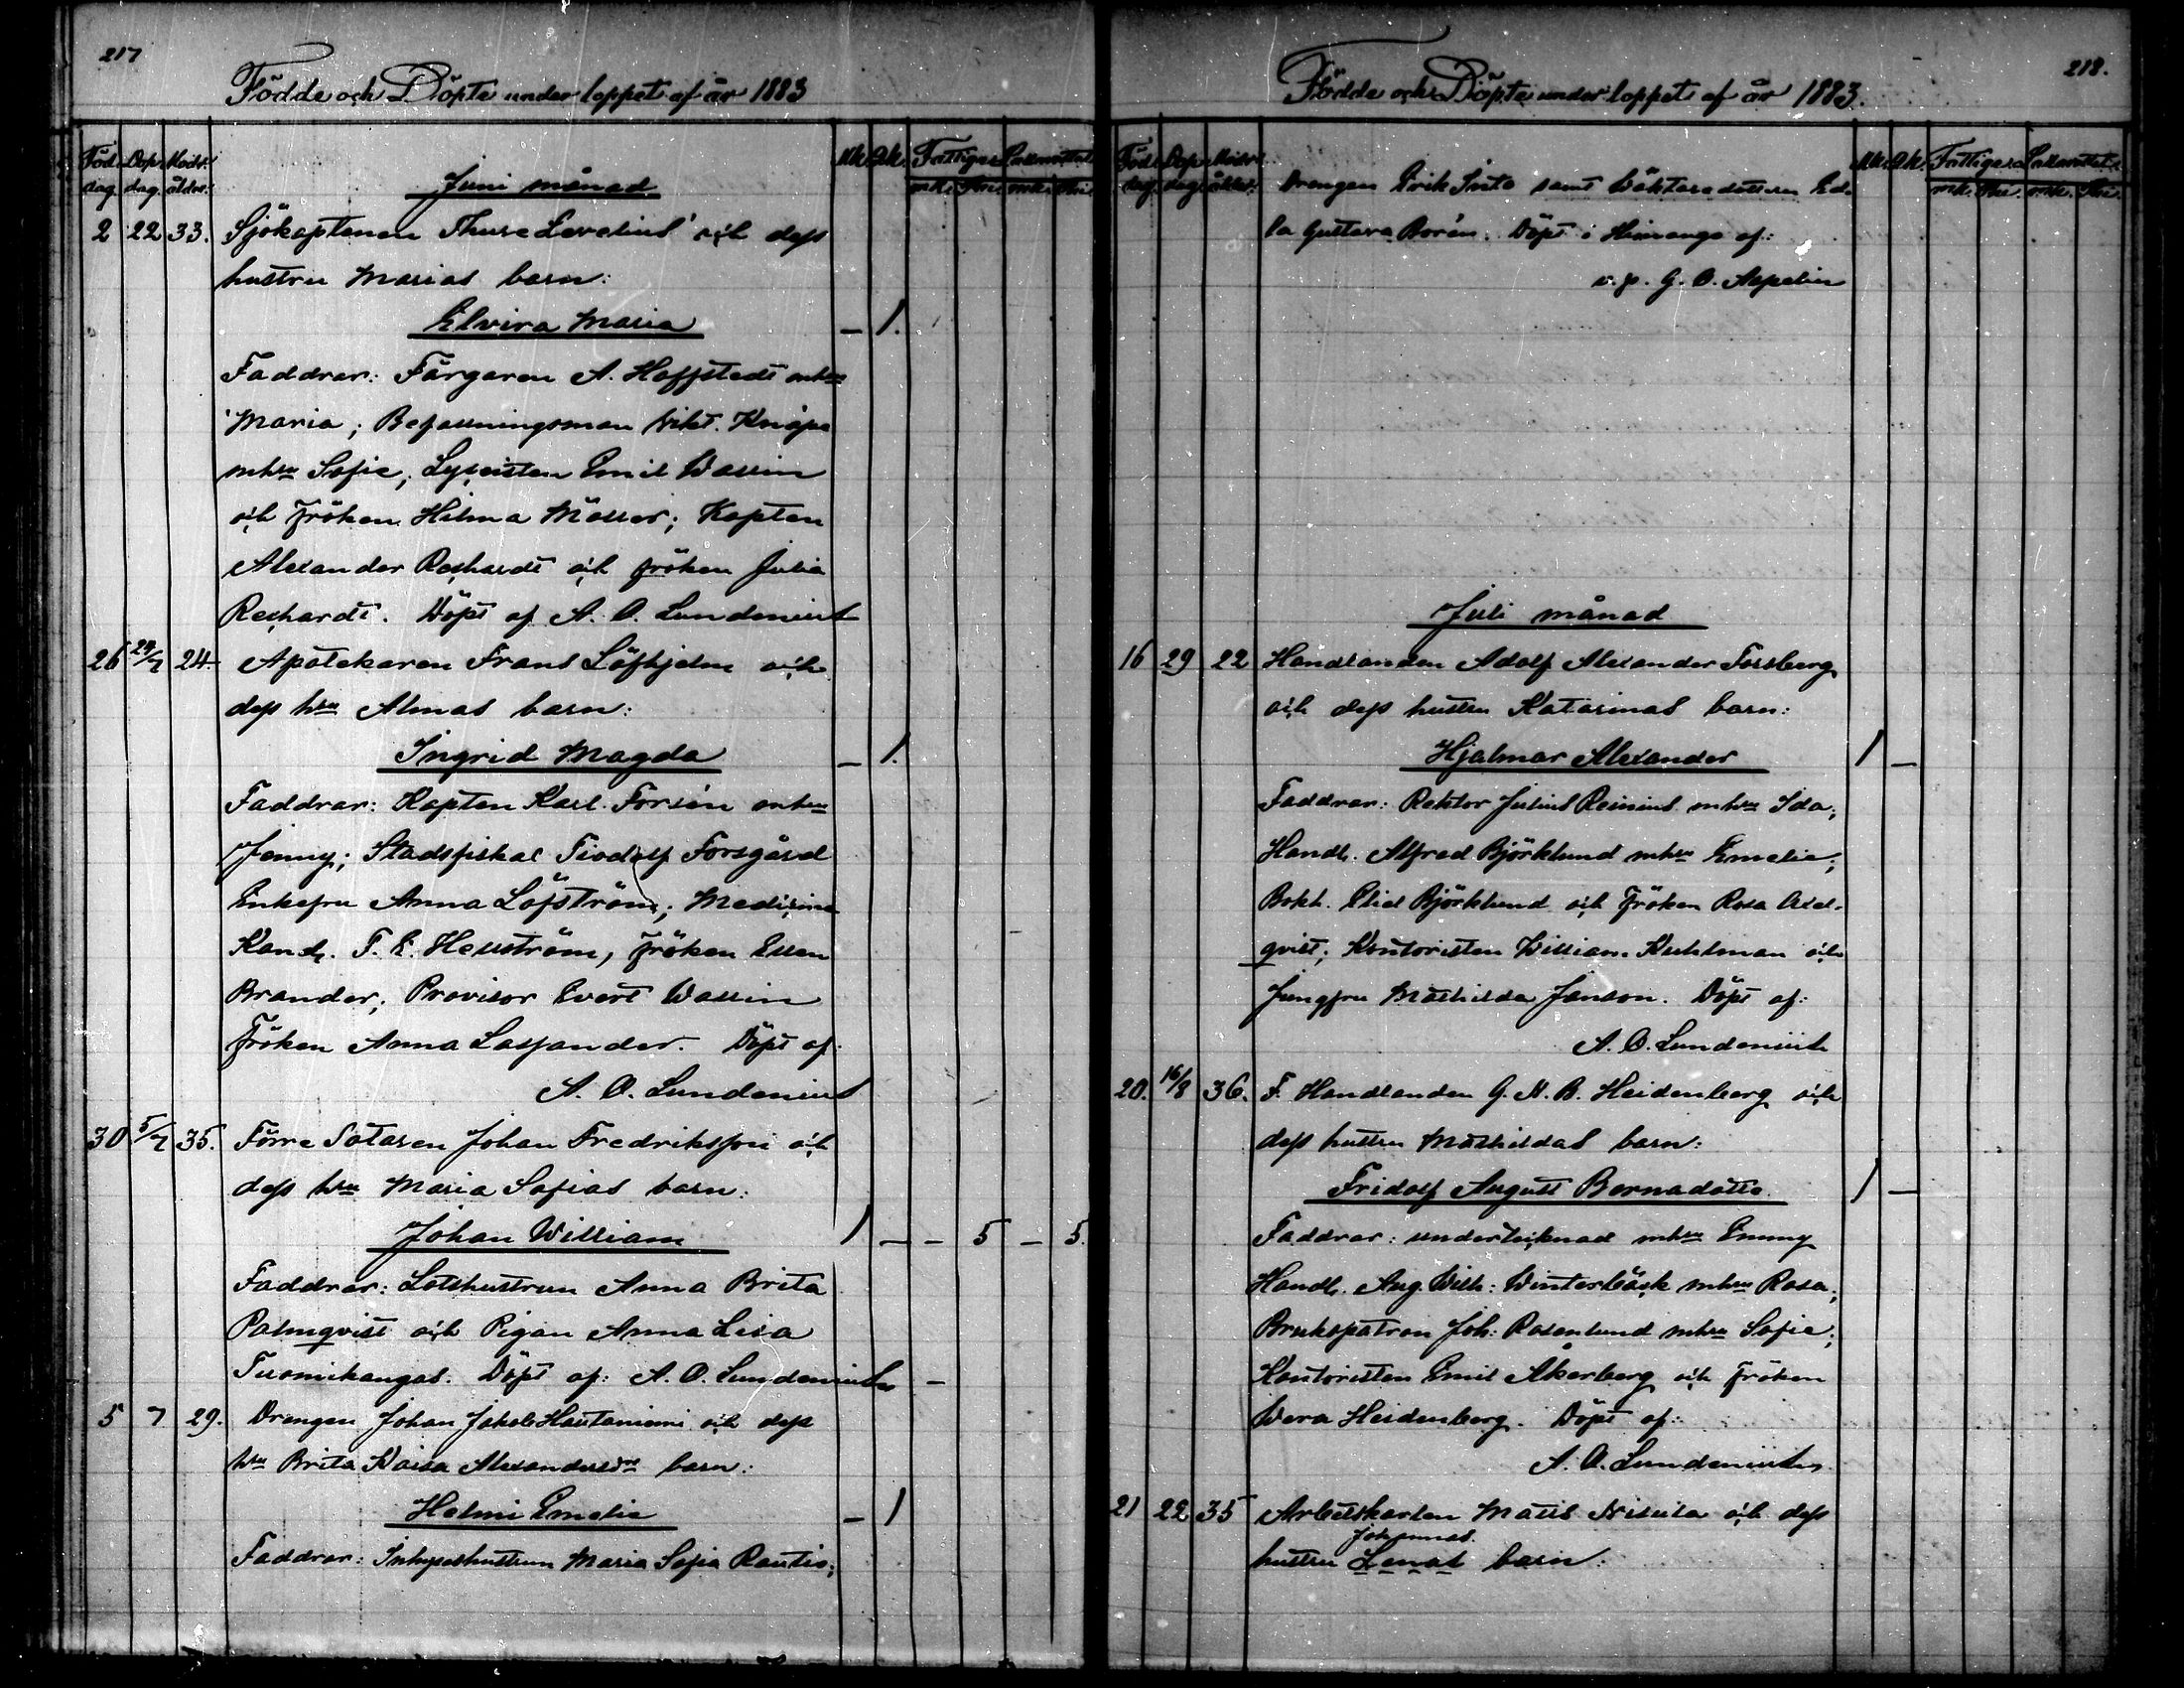 217
Födde och Döpte under loppet af år 1883
Föd. dag. Dop. dag. Modr. ålder. Mk. Qk. Fattigas mk. Pni
Juni månad
2 22 33. Sjökaptenen Thure Levelius och dess
hustru Marias barn:
Elvira Maria — 1.
Faddrar: Färgaren A. Hoffstedt mhru
Maria; Befallningsman Vikt. Knape
mhru Sofie; Lyceisten Emil Wallin
och Fröken Hilma Möller; Kapten
Alexander Rechardt och fröken Julia
Rechardt. Döpt af A. O. Lundenius
26 24/7 24. Apotekaren Frans Löfhjelm och
dess hru Almas barn:
Ingrid Magda — 1.
Faddrar: Kapten Karl Forsén mhru
Jenny; Stadsfiskal Tiodolf Forsgård
Enkefru Anna Löfström; Medicine
Kand. F. E. Hellström, Fröken Ellen
Brander; Provisor Evert Wallin
Fröken Anna Lassander. Döpt af:
A. O. Lundenius
30 5/7 35. Förre Sotaren Johan Fredriksson och
dess hru Maria Sofias barn:
Johan William 1 — — 5 — 5.
Faddrar: Lotshustrun Anna Brita
Palmqvist och Pigan Anna Lisa
Tuomikangas. Döpt af: A. O. Lundenius
5 7 29. Drengen Johan Jakob Hautaniemi och dess
hru Brita Kaisa Alexandersdr barn:
Helmi Emelie — 1
Faddrar: Inhyseshustrun Maria Sofia Rautio;
218.
Födde och Döpte under loppet af år 1883.
Föd. dag Dop. dag Modr. ålder. Mk. Qk. Fattigas mk. Pni.
Drengen Erik samt dottern Ed-
la Gustava Borén. Döpt i Himango af:
v. p. G. O. Aspelin
Juli månad
16 29 22 Handlanden Adolf Alexander Forsberg
och dess hustru Katarinas barn:
Hjalmar Alexander 1 —
Faddrar: Rektor Julius Reinius mhru Ida;
Handl. Alfred Björklund mhru Emelie;
Bokh. Eliel Björklund och Fröken Rosa Axel-
qvist; Kontoristen William Kuhlman och
Jungfru Mathilda Janson. Döpt af:
A. O. Lundenius
20. 16/8 36. F. Handlanden G. A. B. Heidenberg och
dess hustru Mathildas barn:
Fridolf August Bernadotte 1 —
Faddrar: undertecknad mhru Emmy
Handl. Aug. Wilh: Winterbäck mhru Rosa;
Brukspatron Joh: Rosenlund mhru Sofie;
Kontoristen Emil Åkerberg och Fröken
Wera Heidenberg. Döpt af:
A. O. Lundenius
21 22 35 Arbetskarlen Matts Niskila och dess
Johannas
hustru Lenas barn: